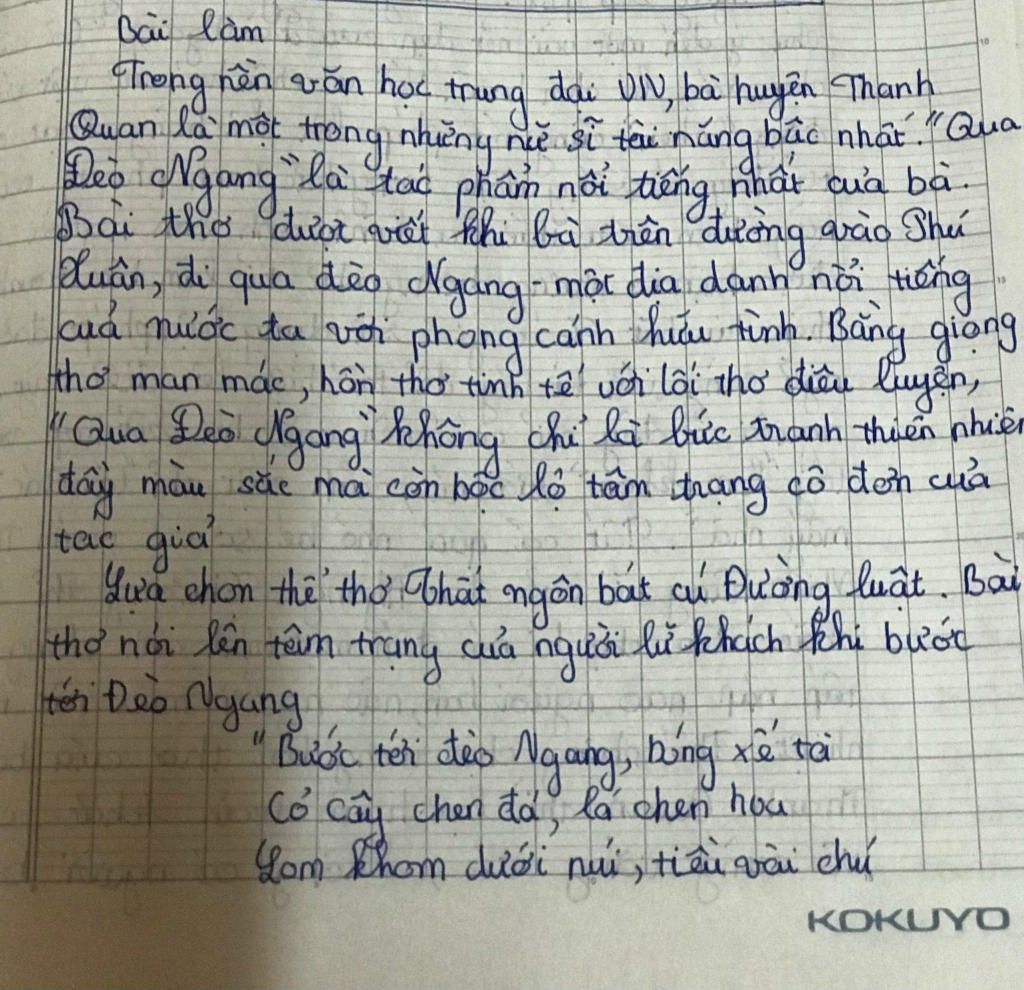 Bài làm
Trong nền văn học trung đại VN, bà huyện Thanh
Quan là một trong những nữ sĩ tài năng bậc nhất. "Qua
Đèo Ngang" là tác phẩm nổi tiếng nhất của bà.
Bài thơ được viết khi bà trên đường vào Phú
Xuân, đi qua đèo Ngang - một địa danh nổi tiếng
của nước ta với phong cảnh hữu tình. Bằng giọng
thơ man mác, hồn thơ tinh tế với lối thơ điêu luyện,
"Qua Đèo Ngang" không chỉ là bức tranh thiên nhiên
đầy màu sắc mà còn bộc lộ tâm trạng cô đơn của
tác giả
Lựa chọn thể thơ Thất ngôn bát cú Đường luật. Bài
thơ nói lên tâm trạng của người lữ khách khi bước
tới Đèo Ngang
"Bước tới đèo Ngang, bóng xế tà
Cỏ cây chen đá, lá chen hoa
Lom khom dưới núi, tiều vài chú
KOKUYO